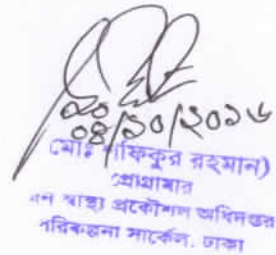 ০৪/১০/২০১৬
মোঃ শফিকুর রহমান)
প্রোগ্রামার
স্বাস্থ্য প্রকৌশল অধিদপ্তর
পরিকল্পনা সার্কেল, ঢাকা